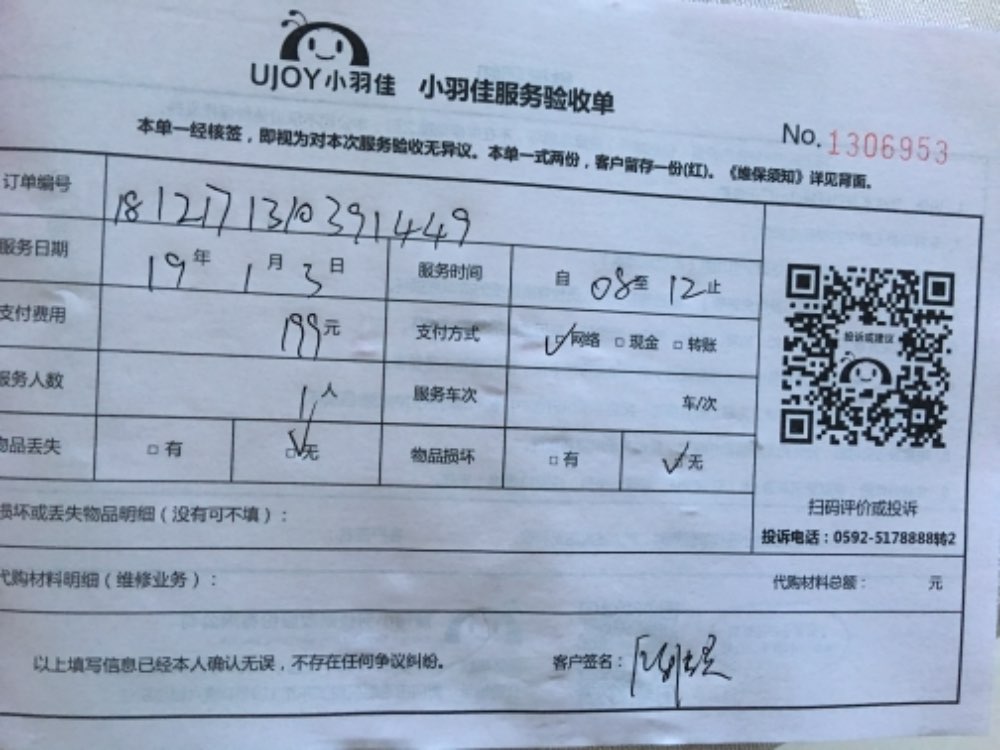 UJOY小羽佳 小羽佳服务验收单
No.1306953
本单一经核签，即视为对本次服务验收无异议。本单一式两份，客户留存一份(红)。《维保须知》详见背面。
订单编号 181217131039 1449
服务日期 19年1月3日 服务时间 自08至12止
支付费用 199元 支付方式 网络 现金 转账
服务人数 1人 服务车次 车/次
物品丢失 有 无 物品损坏 有 无
投诉或建议
扫码评价或投诉
投诉电话：0592-5178888转2
损坏或丢失物品明细（没有可不填）：
代购材料明细（维修业务）： 代购材料总额： 元
以上填写信息已经本人确认无误，不存在任何争议纠纷。 客户签名：